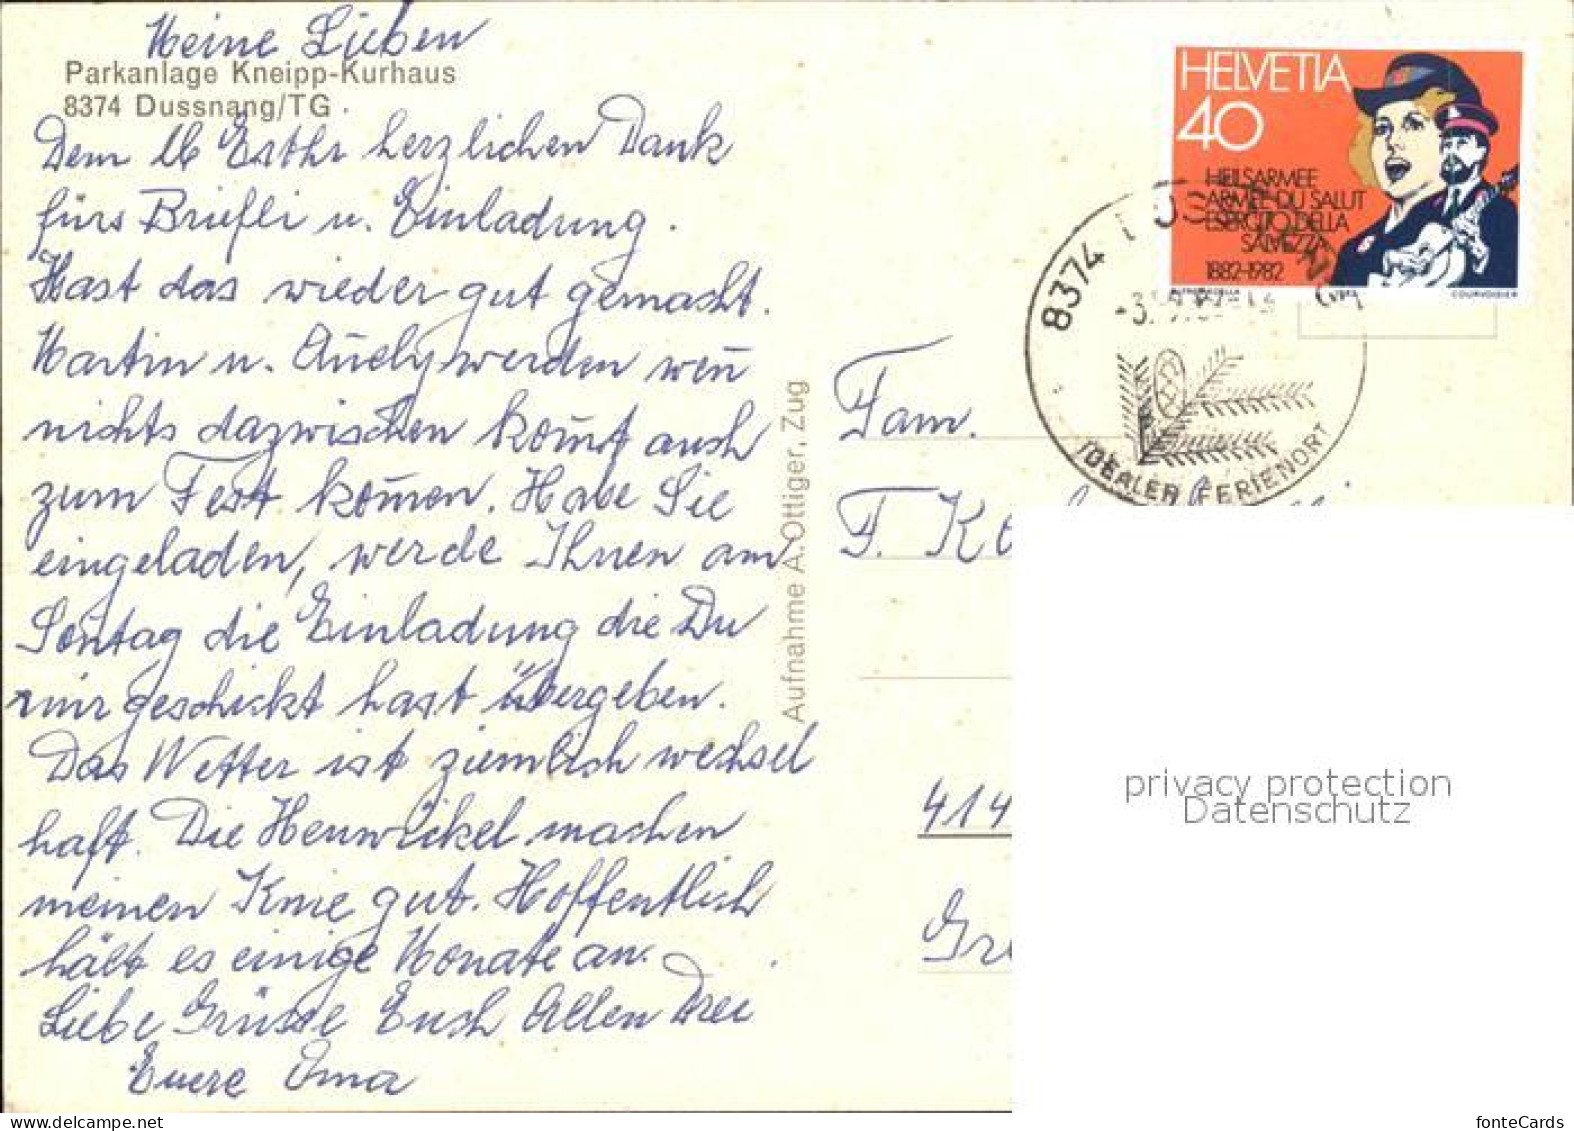 Meine Lieben
Parkanlage Kneipp-Kurhaus
8374 Dussnang/TG
Dem lb Esthr herzlichen Dank
fürs Briefli u. Einladung.
Hast das wieder gut gemacht.
Martin u. werden weñ
nichts dazwischen kom̄t auch
zum Fest kom̄en. Habe Sie
eingeladen, werde Ihnen am
Soñtag die Einladung die Du
mir geschickt hast übergeben.
Das Wetter ist ziemlich wechsel
haft. Die Heuwickel machen
meinen Knie gut. Hoffentlich
hält es einige Monate an.
Liebe Grüsse Euch Allen Drei
Euere Oma
Aufnahme A. Ottiger, Zug
HELVETIA
40
HEILSARMEE
ARMÉE DU SALUT
ESERCITO DELLA
SALVEZZA
1882-1982
COURVOISIER
8374 DUSSNANG
IDEALER FERIENORT
Fam.
F. K
414
Gr
privacy protection
Datenschutz
fonteCards